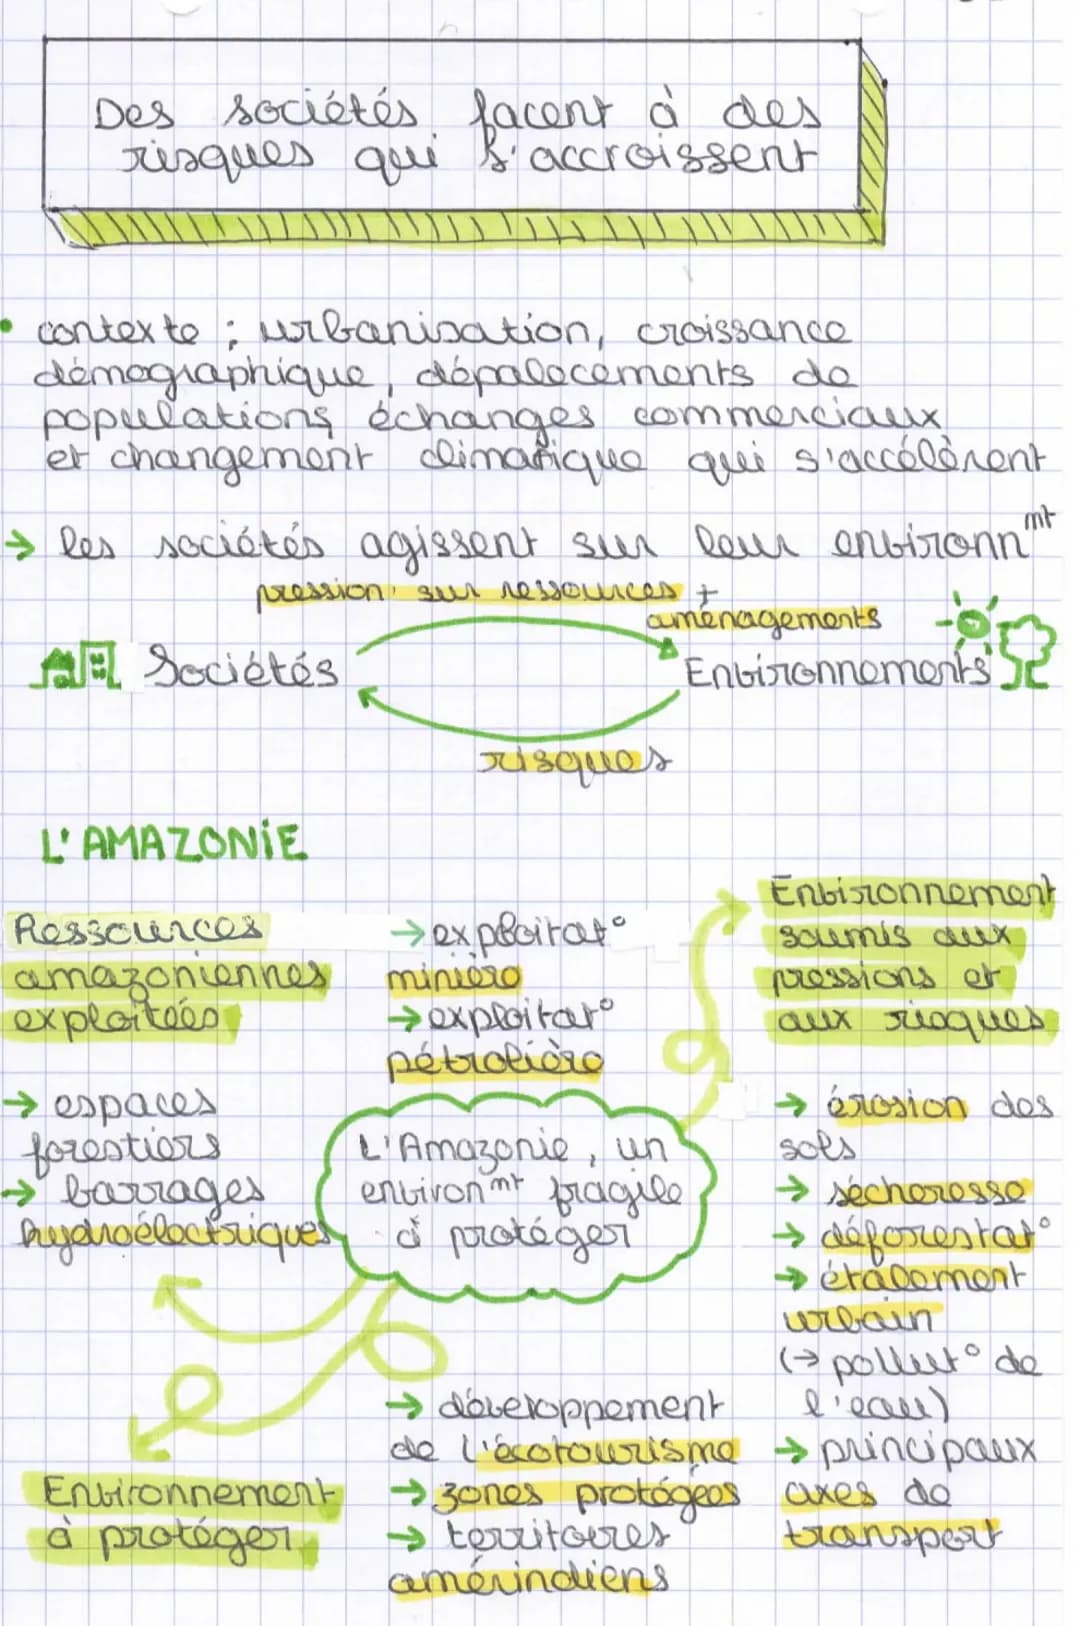 Des sociétés facent à des
risques qui s'accroissent
• contexte : urbanisation, croissance
démographique, dépalecements de
populations, échanges commerciaux
et changement climatique qui s'accélèrent
→ les sociétés agissent sur leur environn^mt
pression sur ressources +
aménagements
Sociétés
Environnements
risques
L'AMAZONIE
Ressources
amazoniennes
exploitées
→ espaces
forestiers
→ barrages
hydroélectriques
→ exploitat°
minière
→ exploitat°
pétrolière
L'Amazonie, un
environ^mt fragile
à protéger
Environnement
soumis aux
pressions et
aux risques
→ érosion des
sols
→ sécheresse
→ déforestat°
→ étalement
urbain
(→ pollut° de
l'eau)
→ principaux
axes de
transport
Environnement
à protéger
→ développement
de l'écotourisme
→ zones protégées
→ territoires
amérindiens